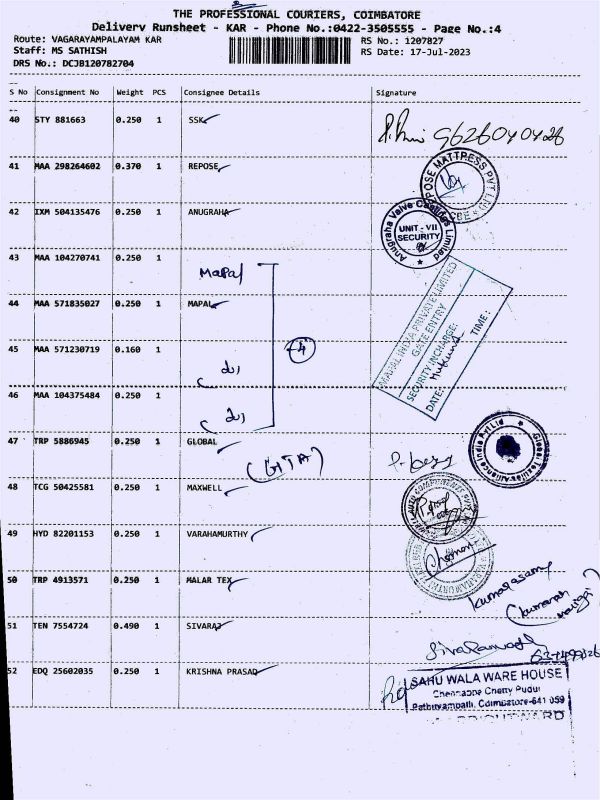 THE PROFESSIONAL COURIERS, COIMBATORE
Delivery Runsheet - KAR - Phone No.:0422-3505555 - Page No.:4
Route: VAGARAYAMPALAYAM KAR
RS No.: 1207827
Staff: MS SATHISH
RS Date: 17-Jul-2023
DRS No.: DCJB120782704
S No Consignment No Weight PCS Consignee Details Signature
40 STY 881663 0.250 1 SSK
9626040426
41 MAA 298264602 0.370 1 REPOSE
REPOSE MATTRESS PVT LTD
CBE
42 IXM 504135476 0.250 1 ANUGRAHA
Anugraha Valve Castings Limited
UNIT - VII
SECURITY
43 MAA 104270741 0.250 1
Mapal
44 MAA 571835027 0.250 1 MAPAL
MAPAL INDIA PRIVATE LIMITED
GATE ENTRY
SECURITY INCHARGE:
DATE: TIME:
45 MAA 571230719 0.160 1
4
46 MAA 104375484 0.250 1
47 TRP 5886945 0.250 1 GLOBAL
(GTA)
Global Textiles Alliance India Pvt Ltd
48 TCG 50425581 0.250 1 MAXWELL
49 HYD 82201153 0.250 1 VARAHAMURTHY
50 TRP 4913571 0.250 1 MALAR TEX
Kumarasamy
51 TEN 7554724 0.490 1 SIVARAJ
52 EDQ 25602035 0.250 1 KRISHNA PRASAD
SAHU WALA WARE HOUSE
Chennappa Chetty Pudur
Pathuvampalli, Coimbatore-641 059